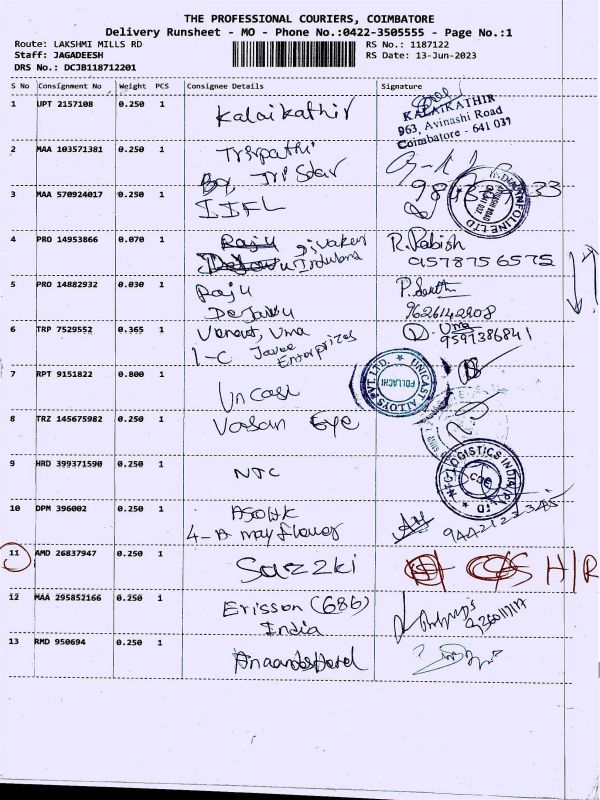 THE PROFESSIONAL COURIERS, COIMBATORE
Delivery Runsheet - MO - Phone No.:0422-3505555 - Page No.:1
Route: LAKSHMI MILLS RD RS No.: 1187122
Staff: JAGADEESH RS Date: 13-Jun-2023
DRS No.: DCJB118712201
S No Consignment No Weight PCS Consignee Details Signature
1 UPT 2157108 0.250 1 Kalaikathir
KALAIKATHIR
963, Avinashi Road
Coimbatore - 641 037
2 MAA 103571381 0.250 1 Tirupathi
By Tri Star
3 MAA 570924017 0.250 1 IIFL
4 PRO 14953866 0.070 1 Raju Divakar R. Rabish
9578756575
5 PRO 14882932 0.030 1 Raju
Dejavu 9626142908
6 TRP 7529552 0.365 1 Venkat, Uma Uma
1-C Javee Enterprizes 9597386841
7 RPT 9151822 0.800 1 Unicast
UNICAST ALLOYS PVT. LTD. POLLACHI
8 TRZ 145675982 0.250 1 Vasan Eye
9 HRD 399371590 0.250 1 NTC
NTC LOGISTICS INDIA (P) LTD
CBE
10 DPM 396002 0.250 1 Asohk
4-A may flower
11 AMD 26837947 0.250 1 Sazzki H/R
12 MAA 295852166 0.250 1 Erisson (686)
India
13 RMD 950694 0.250 1